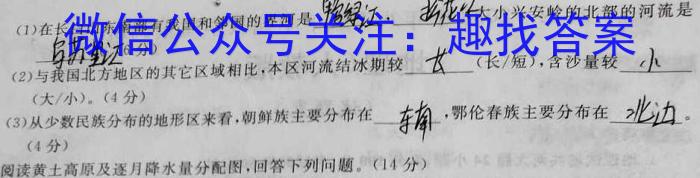 (1)在长 东南部有我国和邻国的界河是 鸭绿江 大小兴安岭的北部的河流是
微信公众号关注：趣找答案
(2)与我国北方地区的其它区域相比,本区河流结冰期较 长 (长/短),含沙量较 小
(大/小)。(4分)
(3)从少数民族分布的地形区来看,朝鲜族主要分布在 东南 ,鄂伦春族主要分布在 北边 。
(4分)
阅读黄土高原及逐月降水量分配图,回答下列问题。(14分)